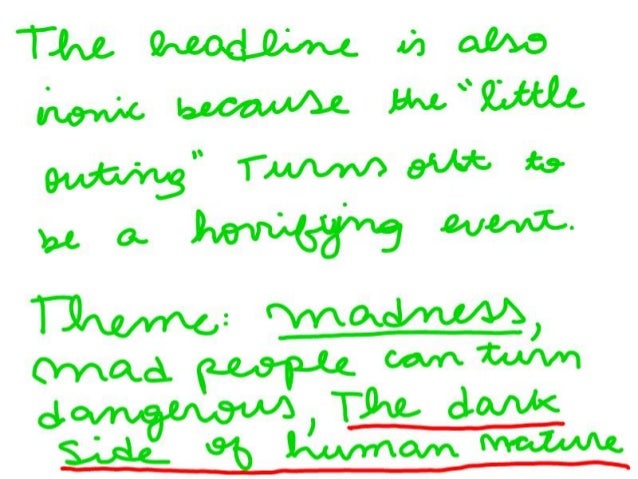 The headline is also
ironic because the "little
outing" Turns out to
be a horrifying event.
Theme: madness,
mad people can turn
dangerous, The dark
side of human nature